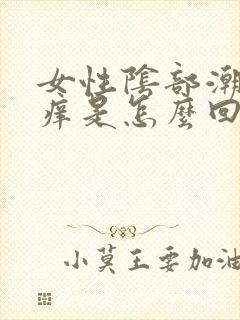 女性陰部潮
痒是怎麼回
小莫王要加油